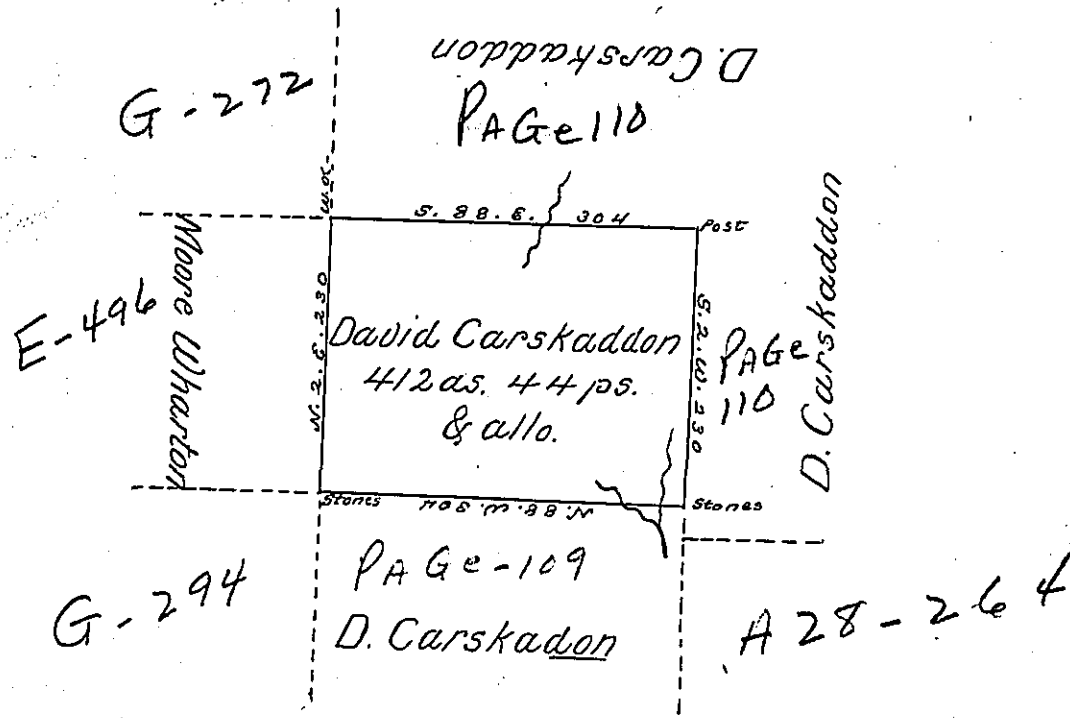 D. Carskaddon
G-272
PAGe 110
W.O.
S. 88. E. 304
Post
Moore Wharton
E-496
N. 2. E. 230
David Carskaddon
412 as. 44 ps.
& allo.
S. 2. W. 230
PAGe
110
D. Carskaddon
Stones
N. 88. W. 304
Stones
PAGe-109
G-294
D. Carskadon
A 28-264